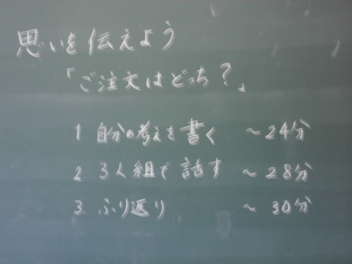 思いを伝えよう
「ご注文はどっち?」
1 自分の考えを書く ~24分
2 3人組で話す ~28分
3. ふり返り ~30分